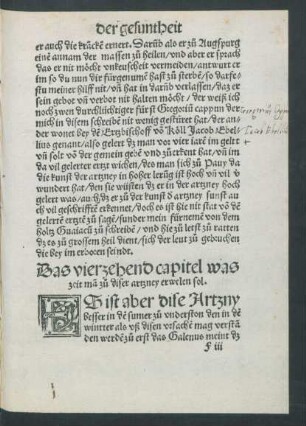 der gesuntheit
er auch die krāckē ernert. Darūb als er zů Augspurg
eine annam der massen zů heilen/vnd aber er sprach
das er nit möcht vnkeuscheit vermeiden/antwurt er
im so du nun dir fürgenumē hast zů sterbē/so darfe-
stu meiner hilff nit/vn hat in darūb verlassen/daz er
sein gebot vn verbot nit halten möcht / der weiß ich
noch zwen durchlüchtiger fürst Gregoriū der
mich in disem schreibē nit wenig gestüret hat/der an-
der wonet bey dē Ertzbischoff vō Köll Jacob Ebel-
lius genant/also gelert dz man vor vier iarē im gelt
vn solt vō der gemein gebē vn zůerkent hat/vn im
da vil gelerter ertzt wichen/des man sich zů Pariß da
die kunst der artzney in hoher leüg ist hoch vn vil v
wundert hat/den sie wüsten dz er in der artzney hoch
gelert was/auch dz er zů der kunst ō artzney sunst au
ch vil geschrifftē erkennet/doch es ist hie nit stat vō dē
gelertē ertzē zů sagē/sunder mein fürnemē von dem
holtz Guaiacū zů schreibē / vnd hie zů letst zů ratten
dz es zů grossem heil dient/sich der leut zů gebuchen
die bey im erboren seindt.
Das vierzehend capitel was
zeit mā zů diser artzney erwelen sol.
ES ist aber dise Artzny
besser in dē sumer zů vnderston den in dē
winter als vß disen vrsachē mag verstā
den werdē zů erst das Galenus meint dz
F iii